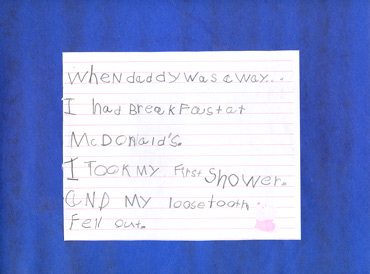 When daddy was away...
I had Breakfast at
McDonald's.
I TOOK MY First Shower.
AND MY loosetooth
Fell out.